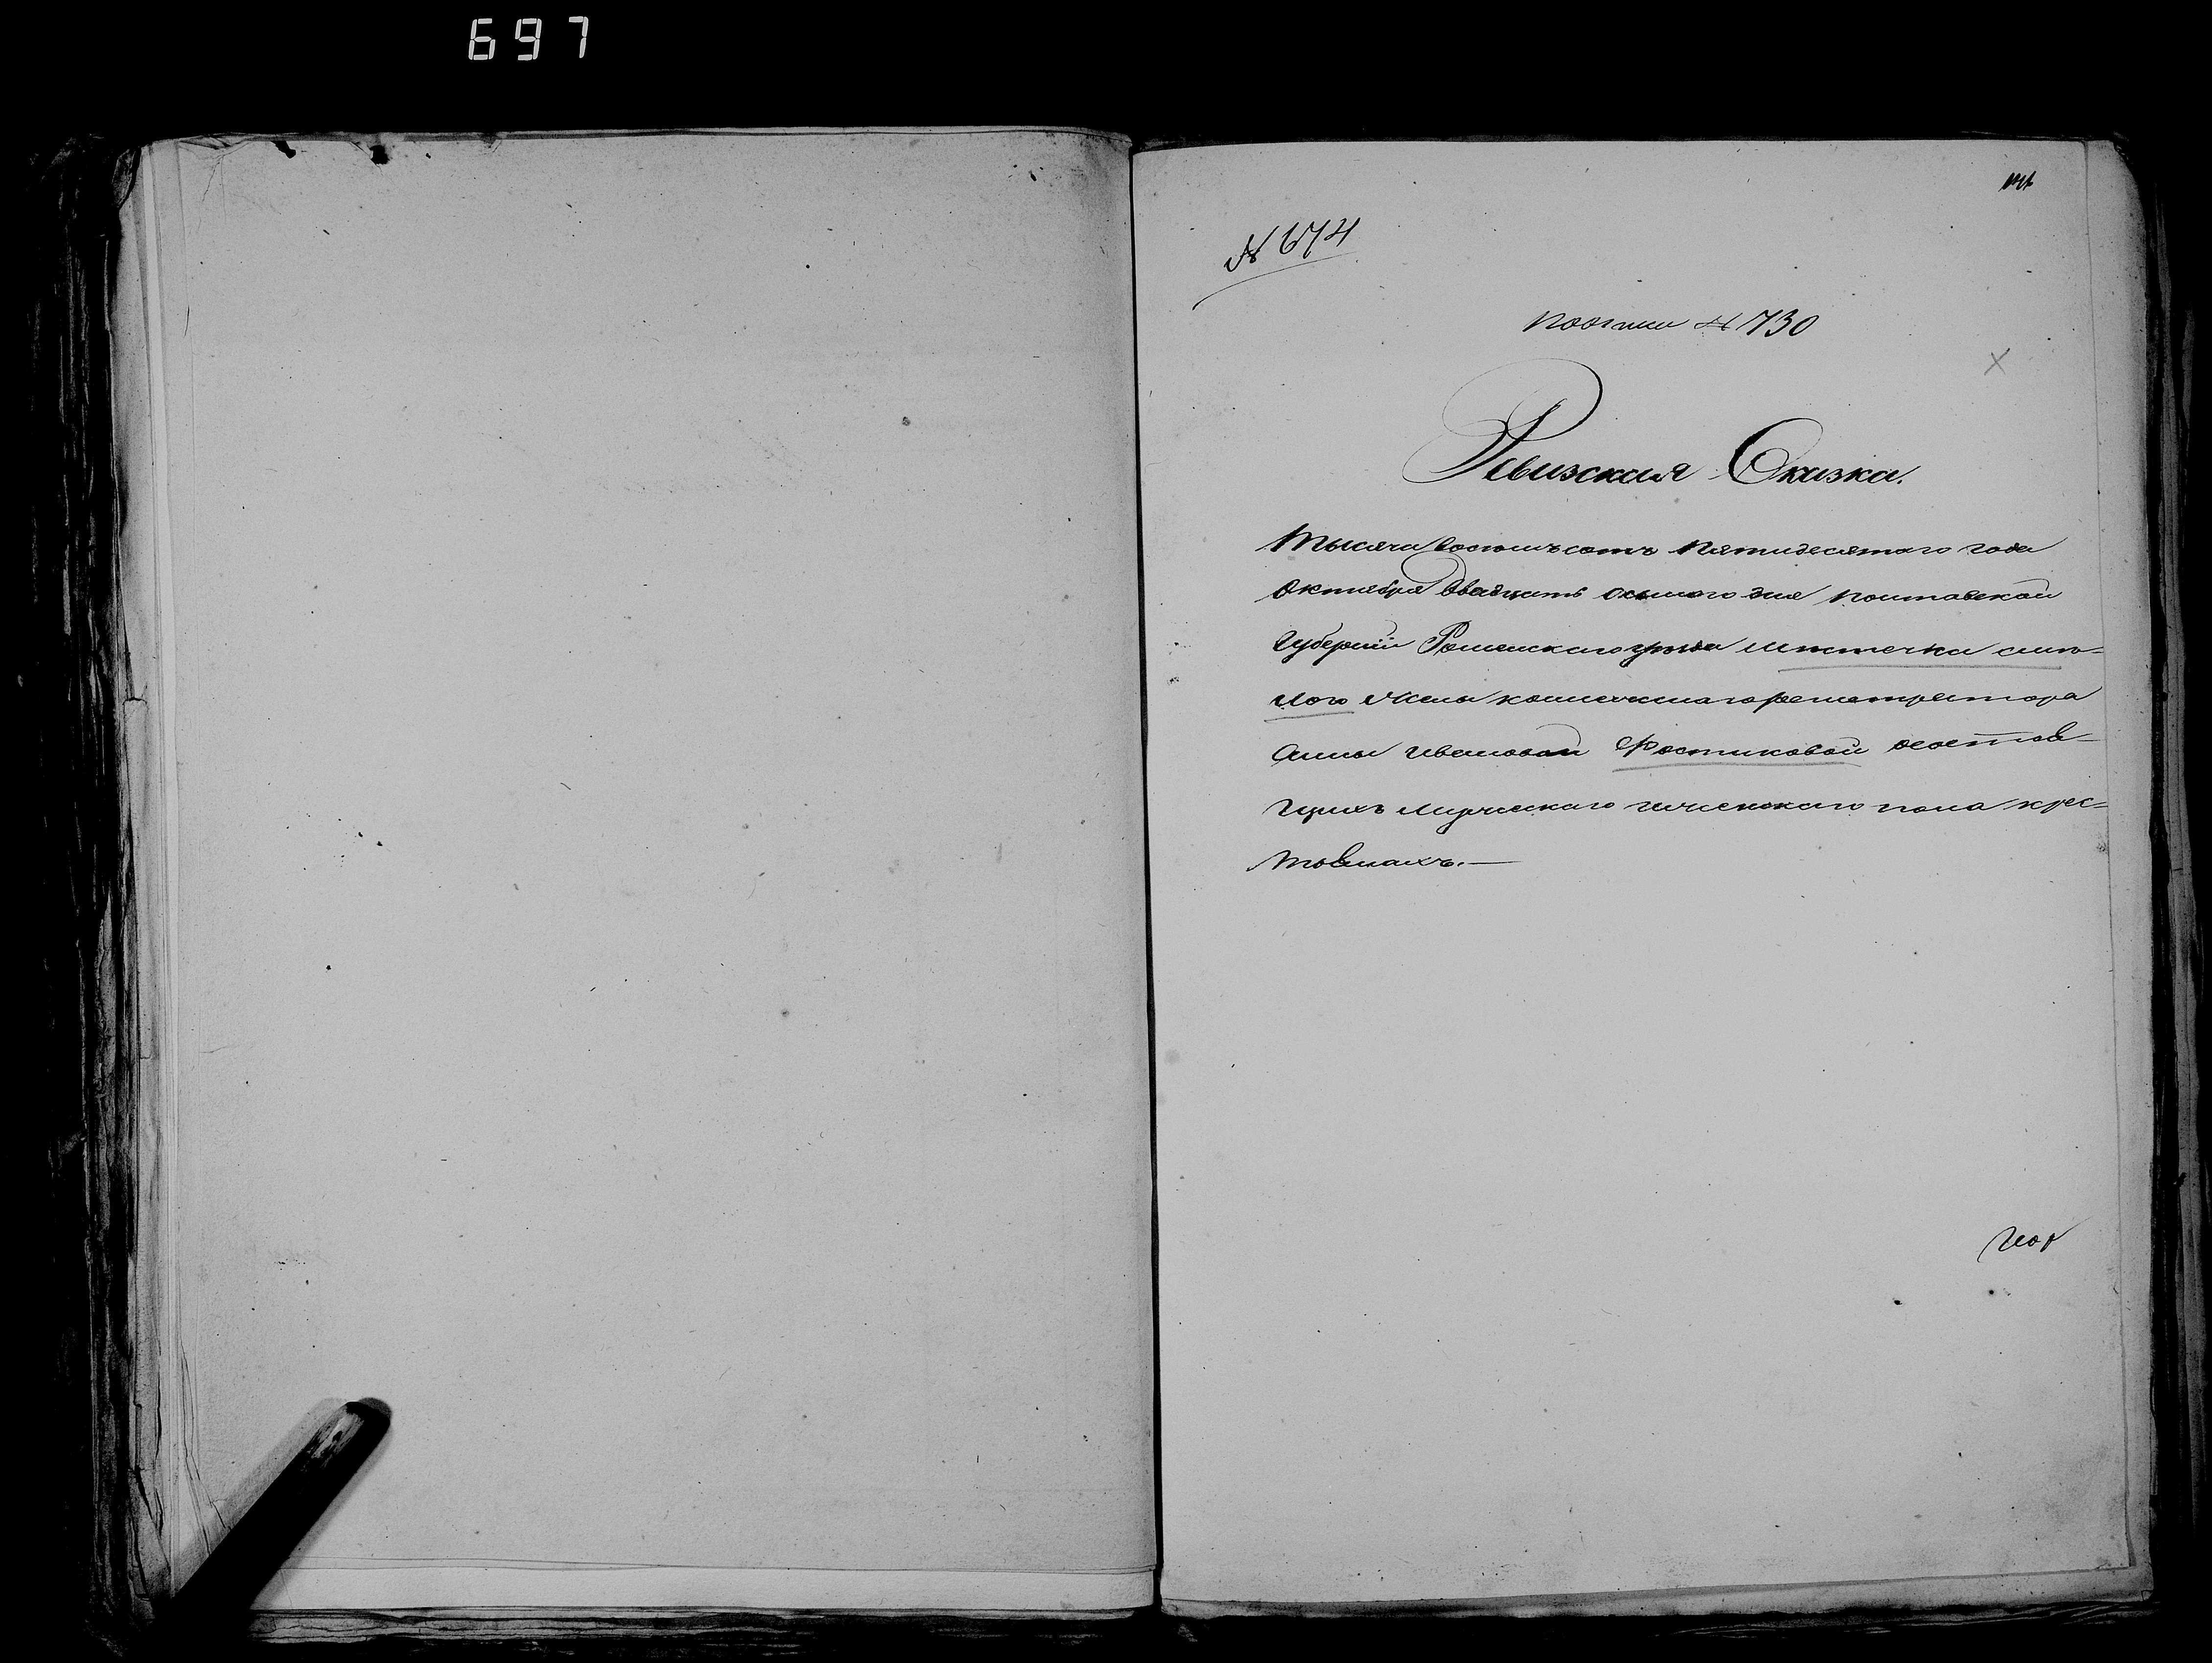 697
№ 674
по описи № 730
Ревизская Сказка.
Тысяча восемъсотъ пятидесятого года
Октября двадцать осьмого дня Полтавской
Губернiи Роменскаго уезда местечка сми-
лого жены коллежскаго регистратора
Анны Ивановой Ростиковой осостоя-
щихъ мужескаго иженскаго пола крес-
тьянахъ.—